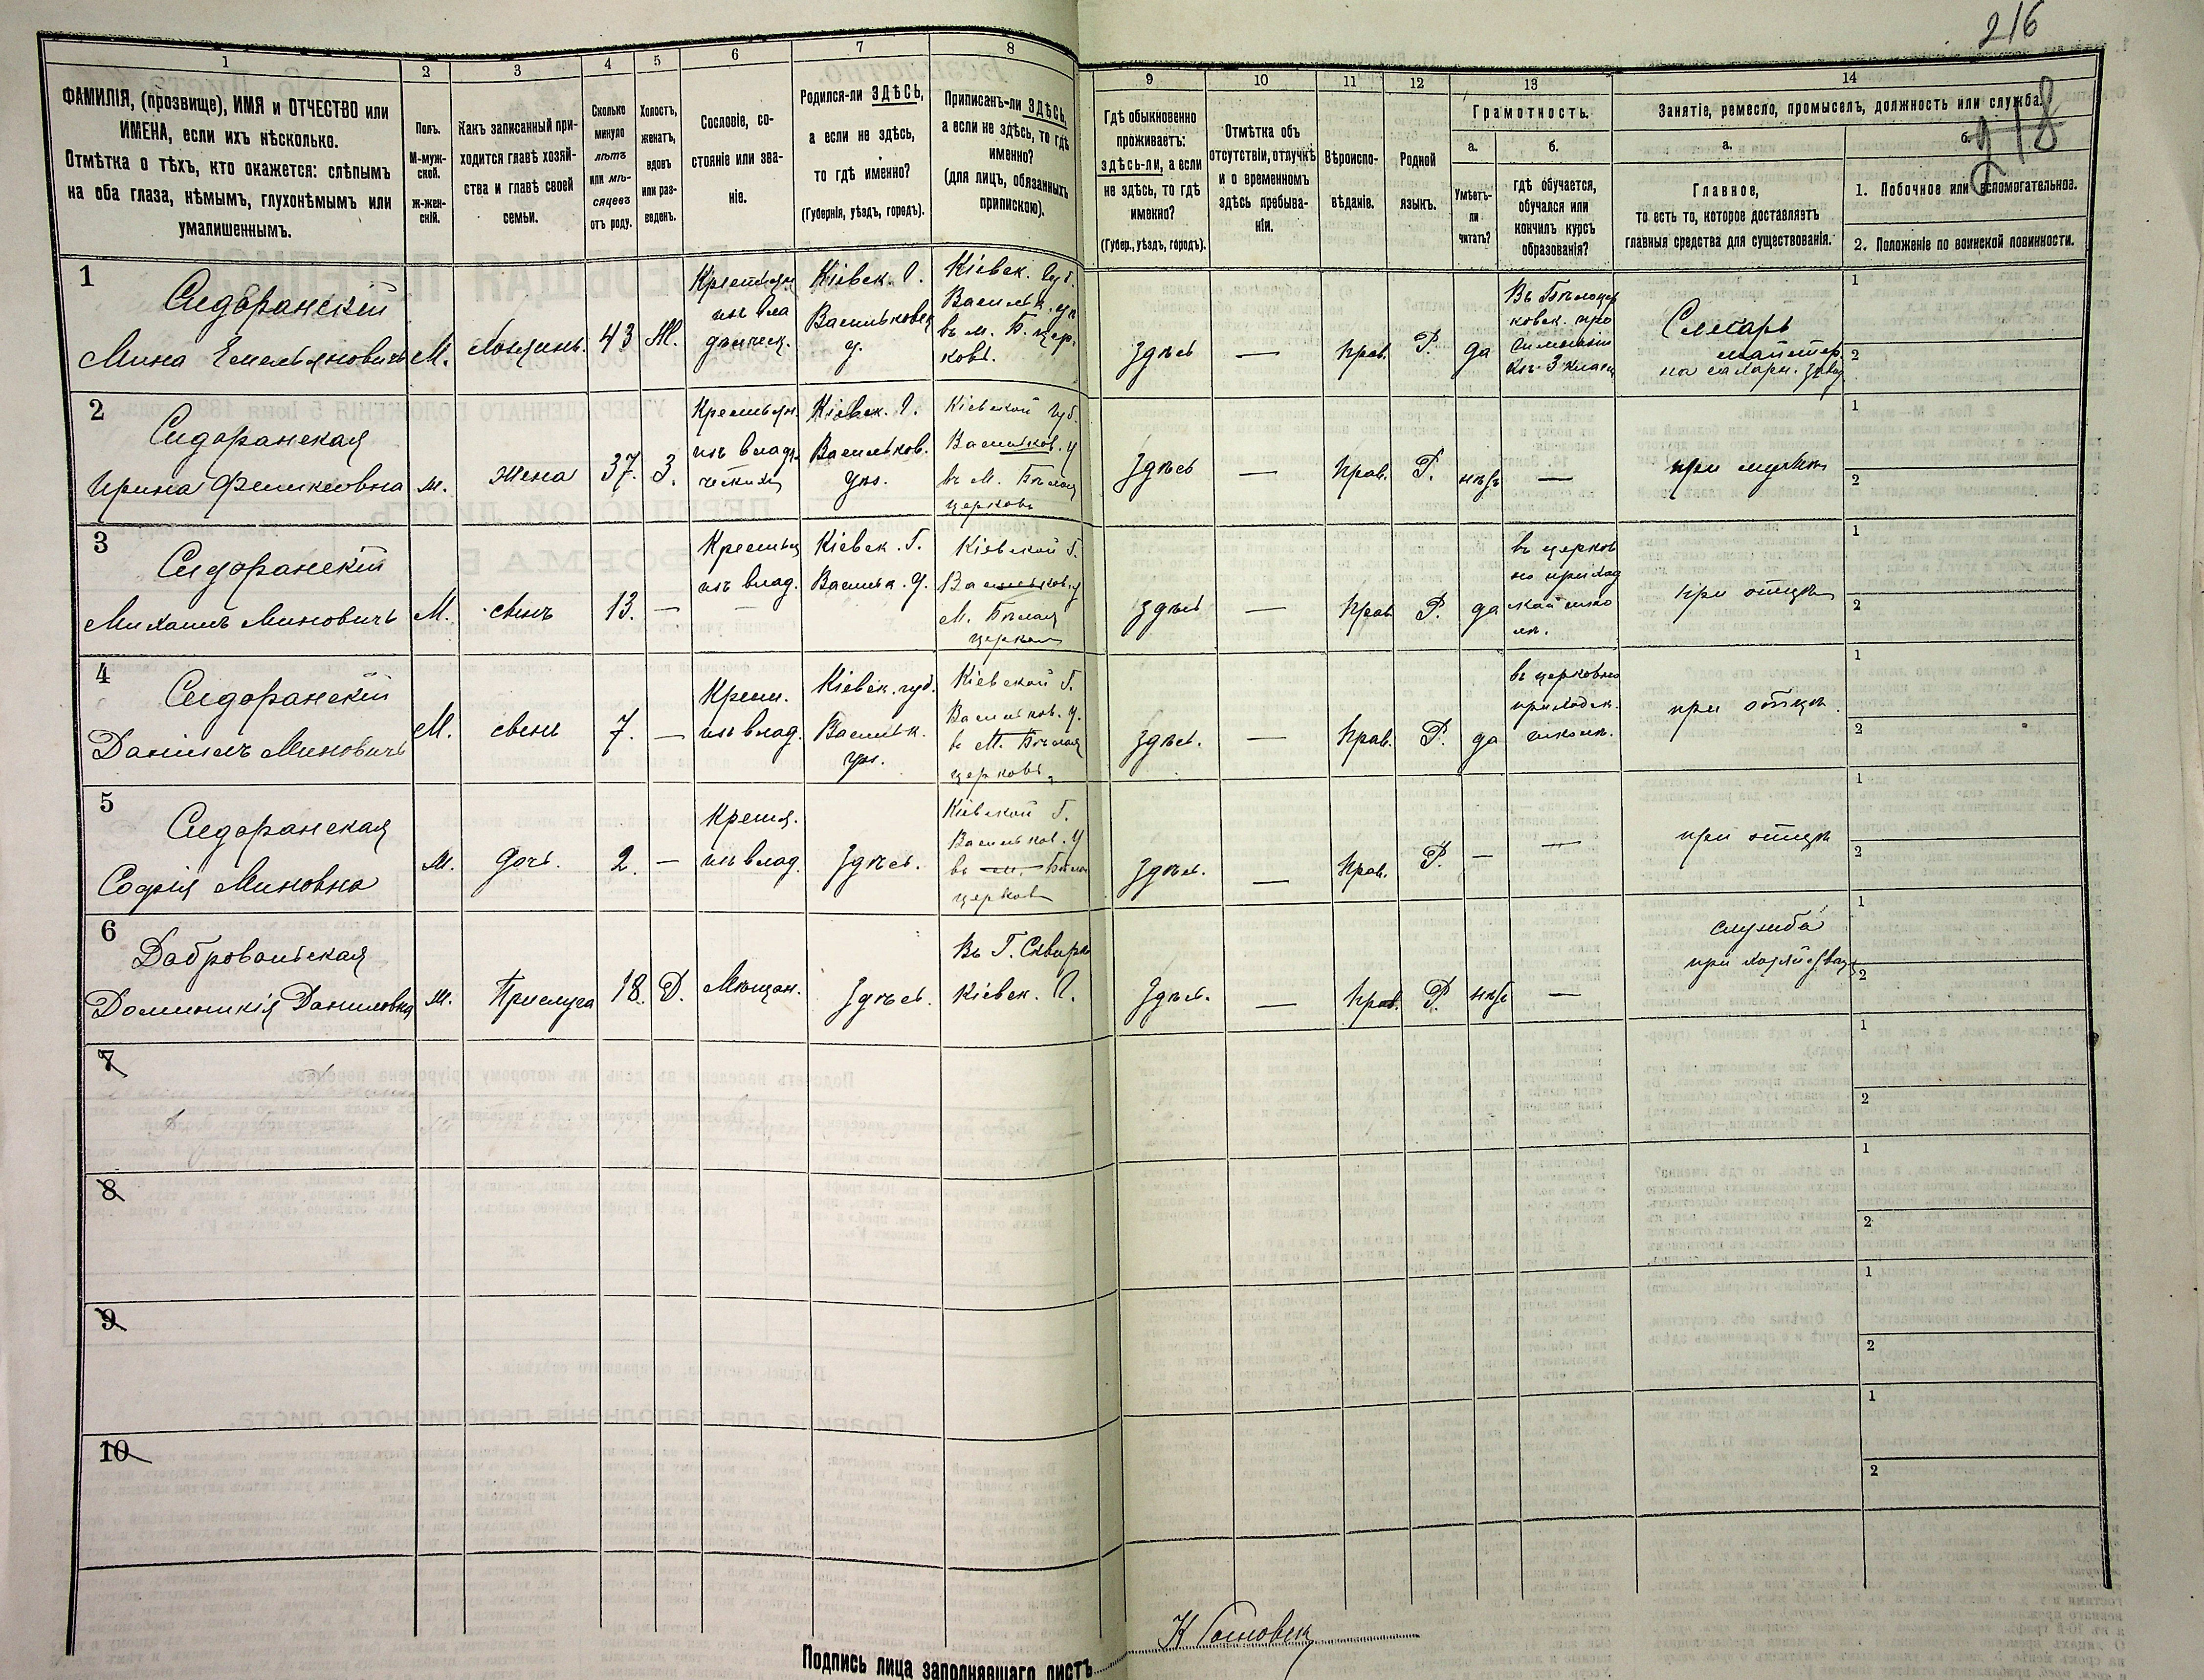 216
218
1
2
3
4
5
6
7
8
9
10
11
12
13
14
ФАМИЛІЯ, (прозвище), ИМЯ и ОТЧЕСТВО или
ИМЕНА, если ихъ нѣсколько.
Отмѣтка о тѣхъ, кто окажется: слѣпымъ
на оба глаза, нѣмымъ, глухонѣмымъ или
умалишеннымъ.
Полъ.
М-муж-
ской.
ж-жен-
скій.
Какъ записанный при-
ходится главѣ хозяй-
ства и главѣ своей
семьи.
Сколько
минуло
лѣтъ
или мѣ-
сяцевъ
отъ роду.
Холостъ,
женатъ,
вдовъ
или раз-
веденъ.
Сословіе, со-
стояніе или зва-
ніе.
Родился-ли ЗДѢСЬ,
а если не здѣсь,
то гдѣ именно?
(Губернія, уѣздъ, городъ).
Приписанъ-ли ЗДѢСЬ,
а если не здѣсь, то гдѣ
именно?
(для лицъ, обязанныхъ
припискою).
Гдѣ обыкновенно
проживаетъ:
ЗДѢСЬ-ЛИ, а если
не здѣсь, то гдѣ
именно?
(Губер., уѣздъ, городъ).
Отмѣтка объ
отсутствіи, отлучкѣ
и о временномъ
здѣсь пребыва-
ніи.
Вѣроиспо-
вѣданіе.
Родной
языкъ.
Грамотность.
а.
Умѣетъ-
ли
читать?
б.
гдѣ обучается,
обучался или
кончилъ курсъ
образованія?
Занятіе, ремесло, промыселъ, должность или служба.
а.
Главное,
то есть то, которое доставляетъ
главныя средства для существованія.
б.
1. Побочное или вспомогательное.
2. Положеніе по воинской повинности.
1
Сидоранскій
Мина Емельяновичъ
М.
Хозяинъ.
43
Ж.
Крестьян
изъ вла
дѣльческ.
Кіевск. Г.
Васильковск
у.
Кіевск. Губ.
Васильк. уѣ
въ м. Б. цер.
ковь.
Здѣсь
—
прав.
Р.
да
Въ Бѣлоцер
ковск. про
гимназіи
изъ 3 класса
Слесарь
на сахарн. завод
1
2
2
Сидоранская
Ирина
м.
жена
37.
З.
Крестьян.
изъ владѣль
ческихъ
Кіевск. Г.
Васильков.
уѣз.
Кіевской Губ.
Васильков. у
въ М. Бѣлая
церковь
Здѣсь
—
прав.
Р.
нѣтъ
—
при мужѣ
1
2
3
Сидоранскій
Михаилъ Миновичъ
М.
сынъ
13.
—
Крестьян
изъ влад.
Кіевск. Г.
Васильк. У.
Кіевской Г.
Васильков. у
М. Бѣлая
церковь
здѣсь
—
прав
Р.
да
въ церков
но приход
ской шко
лѣ.
при отцѣ
1
2
4
Сидоранскій
Даніилъ Миновичъ
М.
сынъ
7.
—
Крест.
изъ влад.
Кіевск. губ.
Васильк.
уѣз.
Кіевской Г.
Васильков. У.
в М. Бѣлая
церковь
здѣсь.
—
прав.
Р.
да
въ церковно
приходск.
школѣ.
при отцѣ.
1
2
5
Сидоранская
Софія Миновна
м.
дочь.
2.
—
Крестя.
изъ влад.
Здѣсь.
Кіевской Г.
Васильков. У
въ м. Бѣлая
церковь
Здѣсь.
—
прав.
Р.
—
—
при отцѣ
1
2
6
Добровольская
Доминикія Даниловна
м.
Прислуга
18.
Д.
Мѣщан.
Здѣсь.
Въ Г. Сквирѣ
Кіевск. Г.
Здѣсь.
—
прав.
Р.
нѣтъ
—
служба
при хозяйствѣ
1
2
7
1
2
8
1
2
9
1
2
10
1
2
Подпись лица заполнявшаго листъ